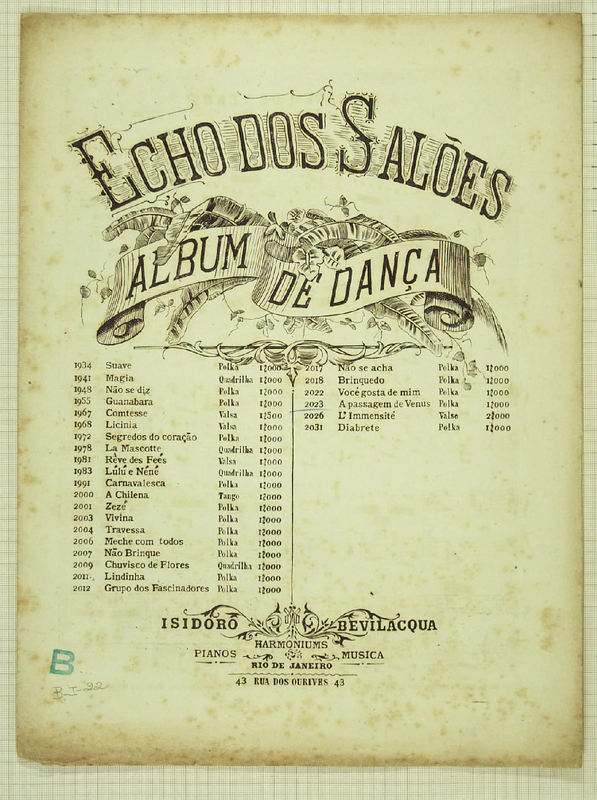 ECHO DOS SALÕES
ALBUM DE DANÇA
1934 Suave Polka 1$000
1941 Magia Quadrilha 1$000
1948 Não se diz Polka 1$000
1955 Guanabara Polka 1$000
1967 Comtesse Valsa 1$500
1968 Licinia Valsa 1$000
1972 Segredos do coração Polka 1$000
1978 La Mascotte Quadrilha 1$000
1981 Rêve des Feés Valsa 1$000
1983 Lúlú e Néné Quadrilha 1$000
1991 Carnavalesca Polka 1$000
2000 A Chilena Tango 1$000
2001 Zezé Polka 1$000
2003 Vivina Polka 1$000
2004 Travessa Polka 1$000
2006 Meche com todos Polka 1$000
2007 Não Brinque Polka 1$000
2009 Chuvisco de Flores Quadrilha 1$000
2011 Lindinha Polka 1$000
2012 Grupo dos Fascinadores Polka 1$000
2017 Não se acha Polka 1$000
2018 Brinquedo Polka 1$000
2022 Você gosta de mim Polka 1$000
2023 A passagem de Venus Polka 1$000
2026 L'Immensité Valse 2$000
2031 Diabrete Polka 1$000
ISIDORO BEVILACQUA
HARMONIUMS
PIANOS MUSICA
RIO DE JANEIRO
43 RUA DOS OURIVES 43
B